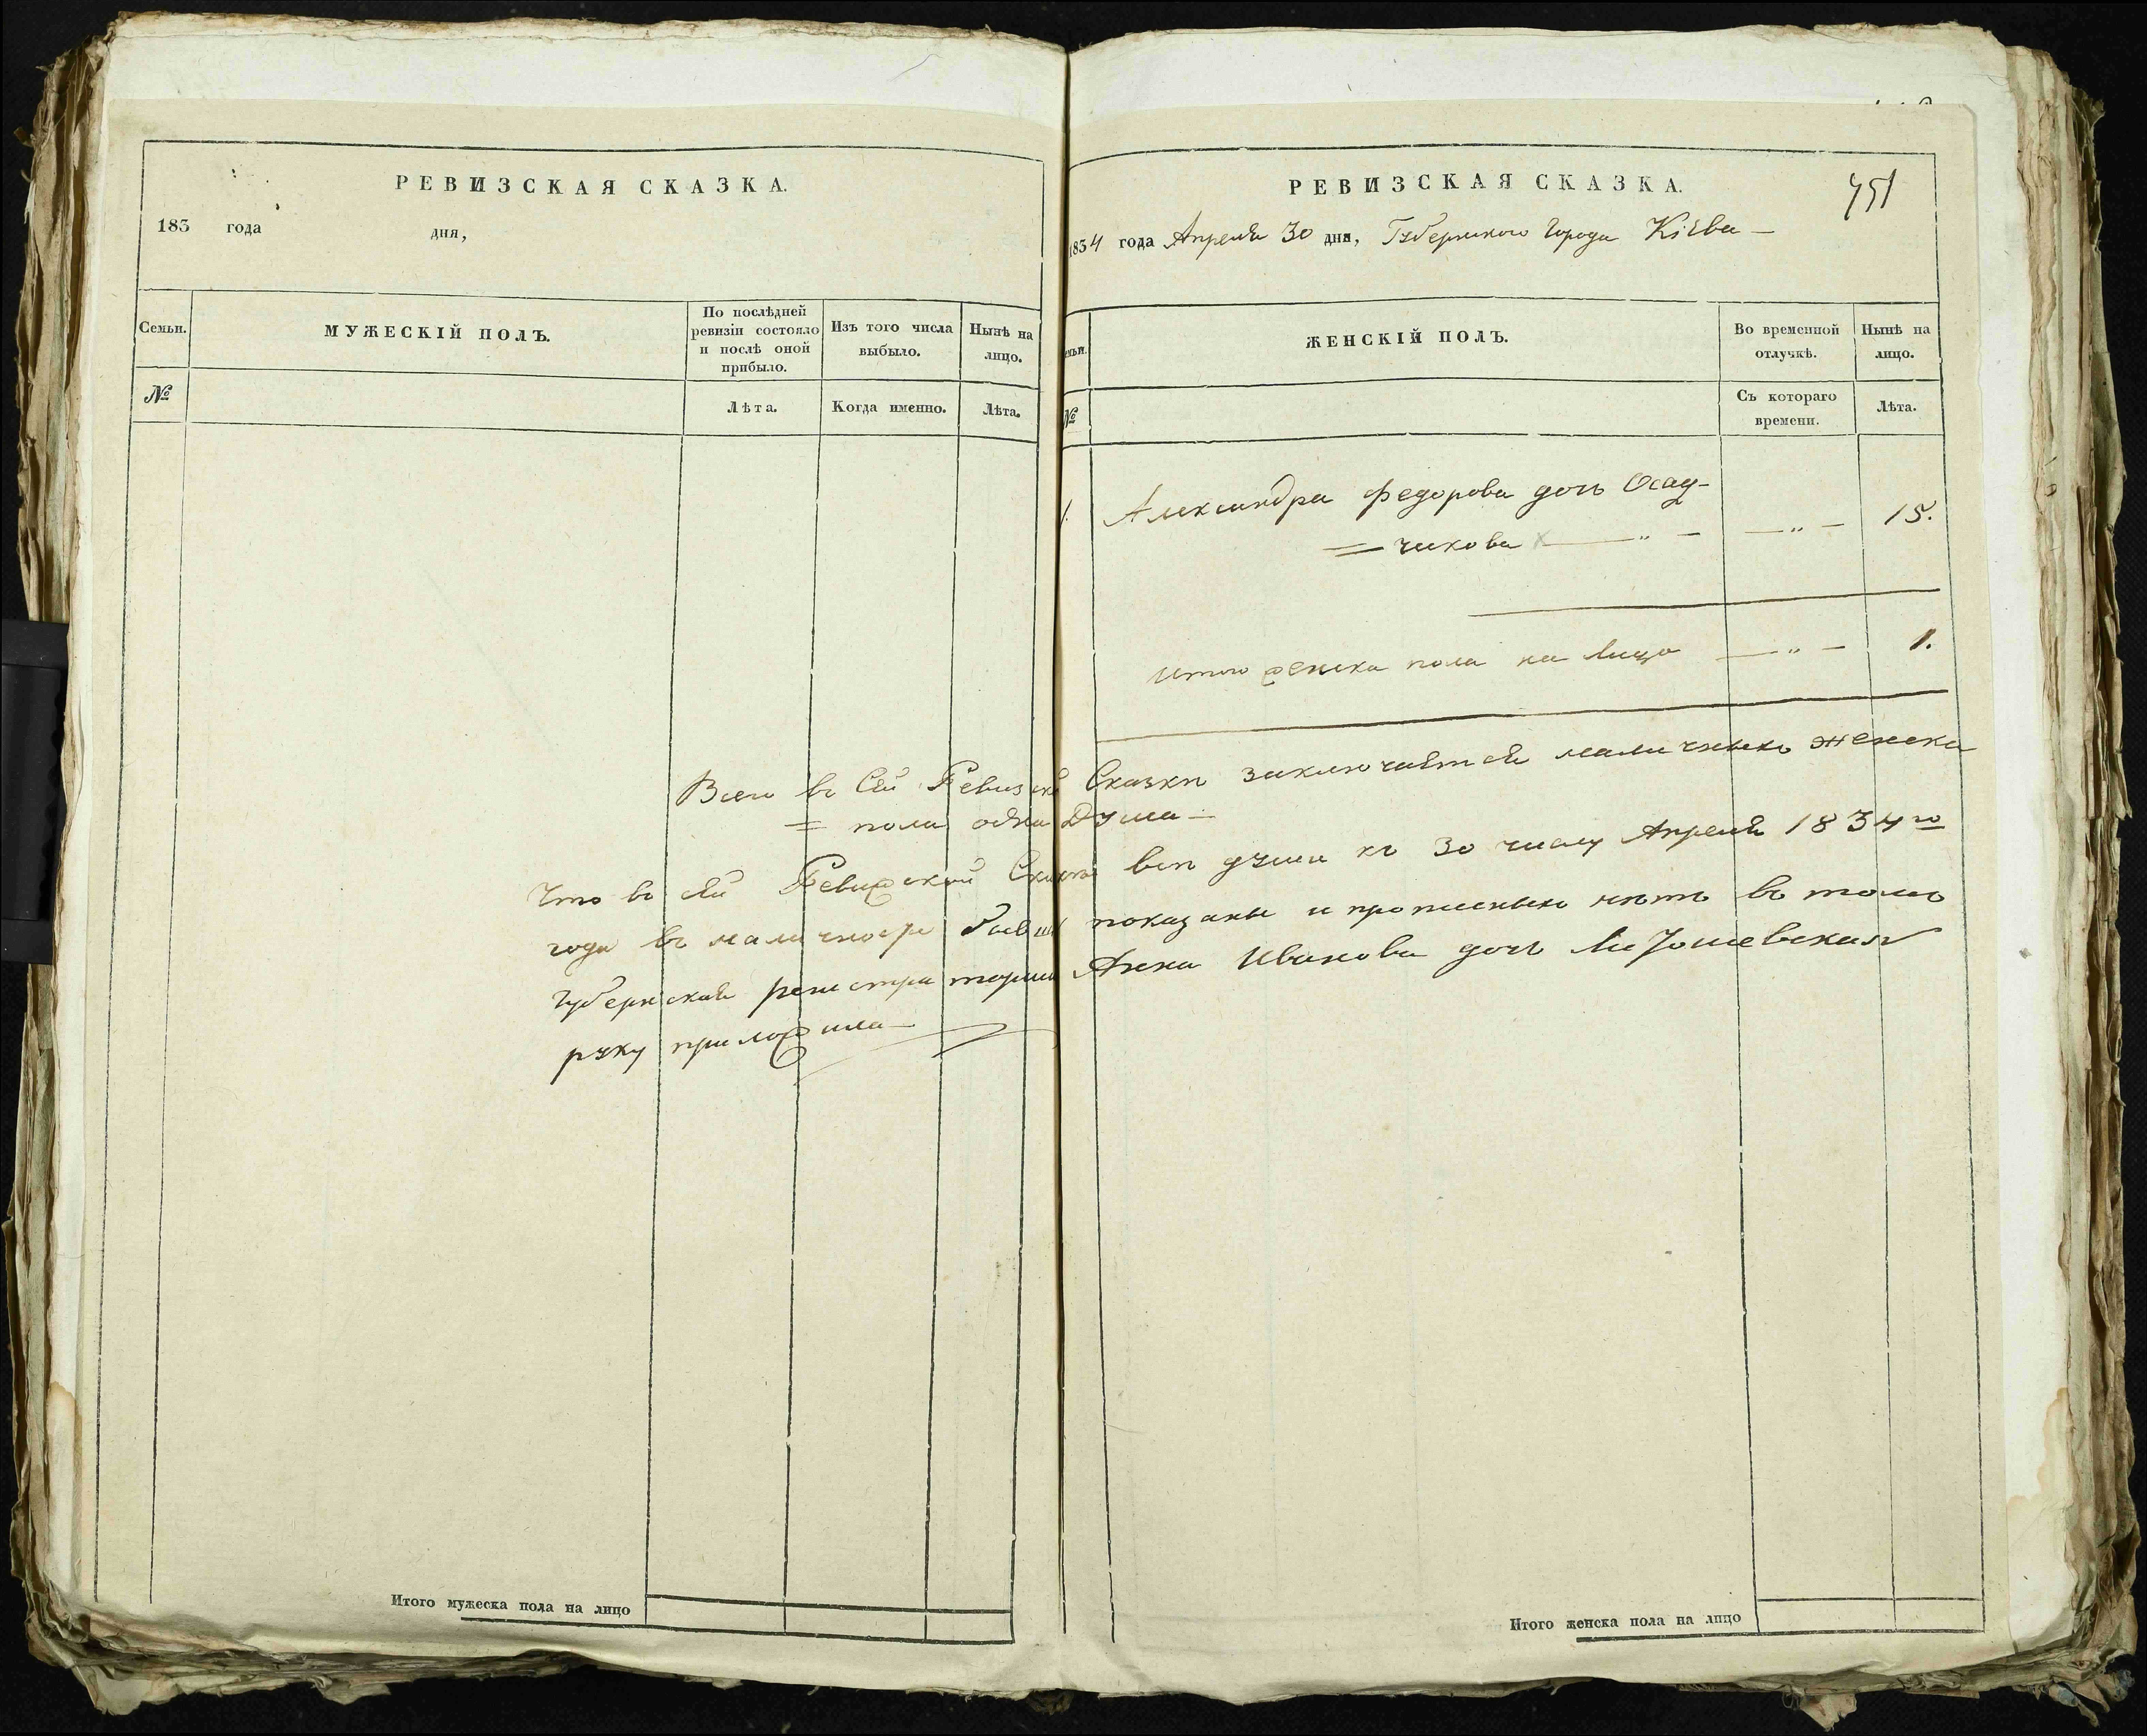 РЕВИЗСКАЯ СКАЗКА.
183 года дня,
Семьи.
МУЖЕСКІЙ ПОЛЪ.
По послѣдней
ревизіи состояло
и послѣ оной
прибыло.
Изъ того числа
выбыло.
Нынѣ на
лицо.
№
Лѣта.
Когда именно.
Лѣта.
Итого мужеска пола на лицо
РЕВИЗСКАЯ СКАЗКА.
751
1834 года Апреля 30 дня, Губернского Города Кіева —
емьи.
ЖЕНСКІЙ ПОЛЪ.
Во временной
отлучкѣ.
Нынѣ на
лицо.
№
Съ котораго
времени.
Лѣта.
1. Александра Федорова дочь Осад-
= чикова — „ — — „ — 15.
Итого женска пола на Лицо — „ — 1.
Всего въ Сей Ревизской Сказки заключается наличныхъ женска
= пола одна Душа —
Что въ сей Ревизской Сказкѣ всѣ души къ 30 числу Апреля 1834го
года въ наличности бывши показаны и прописныхъ нѣтъ въ томъ
Губернская регистраторша Анна Иванова дочь
руку приложила
Итого женска пола на лицо